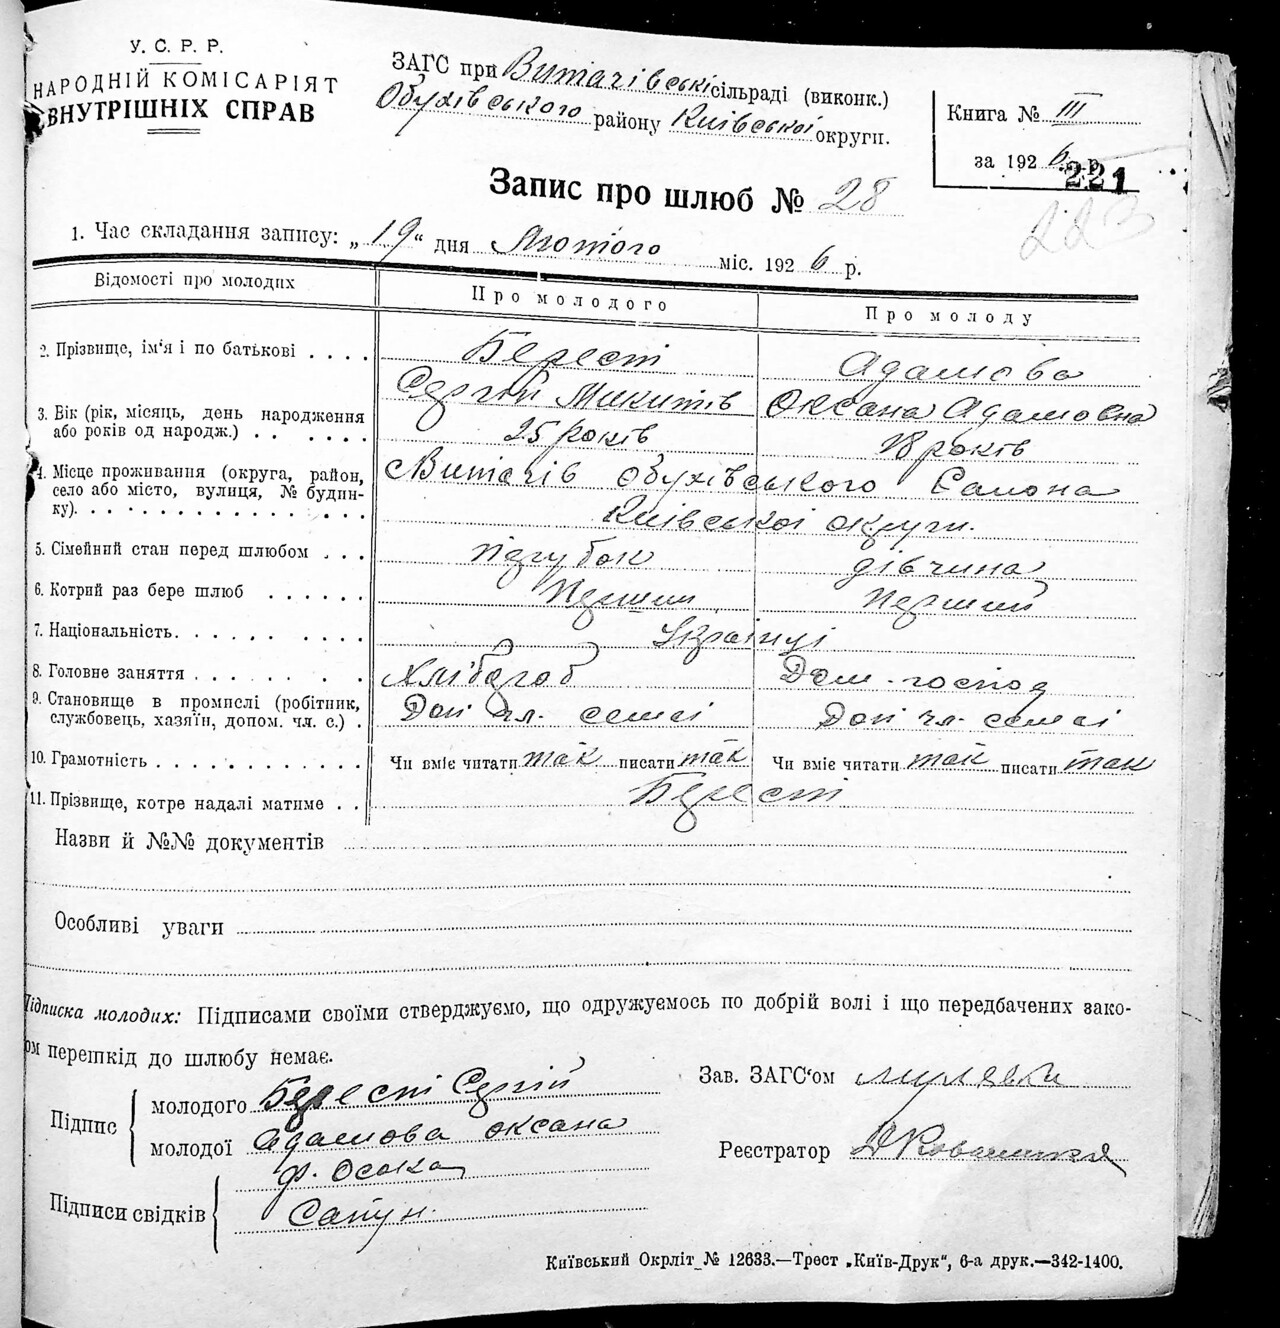 У. С. Р. Р.
НАРОДНІЙ КОМІСАРІЯТ
ВНУТРІШНІХ СПРАВ
ЗАГС при Витачівські сільраді (виконк.)
Обухівського району Київської округи.
Книга № III
за 1926 р.
221
223
Запис про шлюб № 28
1. Час складання запису: „19“ дня Лютого міс. 1926 р.
Відомості про молодих
Про молодого
Про молоду
2. Прізвище, ім'я і по батькові . . . . Берест Адамова
Сергій Микитів Оксана Адамовна
3. Вік (рік, місяць, день народження
або років од народж.) . . . . . . 25 років 18 років
4. Місце проживання (округа, район,
село або місто, вулиця, № будин-
ку). . . . . . . . . . . . . . .
Витачів Обухівського Района
Київської округи.
5. Сімейний стан перед шлюбом . . . парубок дівчина
6. Котрий раз бере шлюб . . . . . . Перший Перший
7. Національність. . . . . . . . . . Українці
8. Головне заняття . . . . . . . . . Хлібороб Дом-господ
9. Становище в промислі (робітник,
службовець, хазяїн, допом. чл. с.) . Доп чл. семьі Доп чл. семьі
10. Грамотність . . . . . . . . . . . . Чи вміє читати так писати так Чи вміє читати так писати так
11. Прізвище, котре надалі матиме . . Берест
Назви й №№ документів
Особливі уваги
Підписка молодих: Підписами своїми стверджуємо, що одружуємось по добрій волі і що передбачених зако-
ом перешкід до шлюбу немає.
Підпис
молодого Берест Сергій
молодої Адамова Оксана
Підписи свідків
Ф. Осока
Сапун.
Зав. ЗАГС'ом
Реєстратор
Київський Окрліт № 12633.—Трест „Київ-Друк“, 6-а друк.—342-1400.